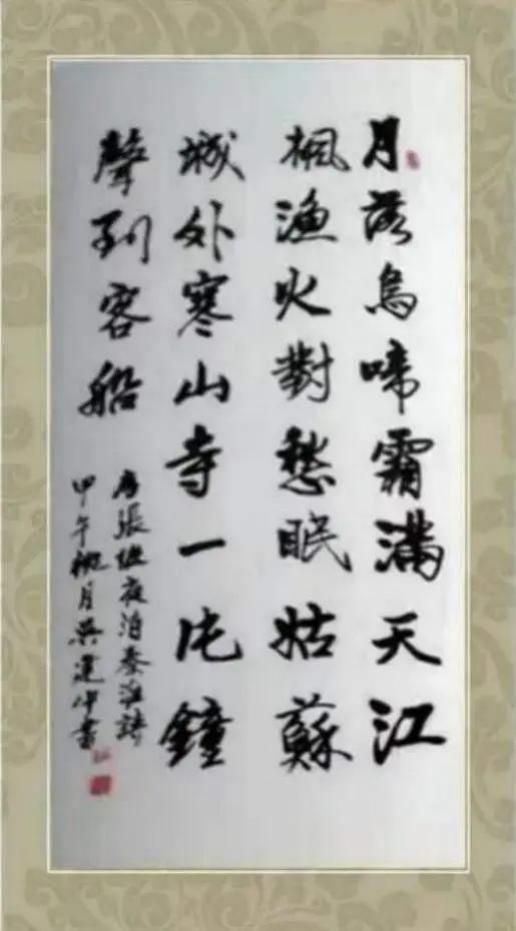 月落烏啼霜滿天江
楓漁火對愁眠姑蘇
城外寒山寺一片鐘
聲到客船
唐張繼夜泊秦淮詩
甲午桃月吳中書